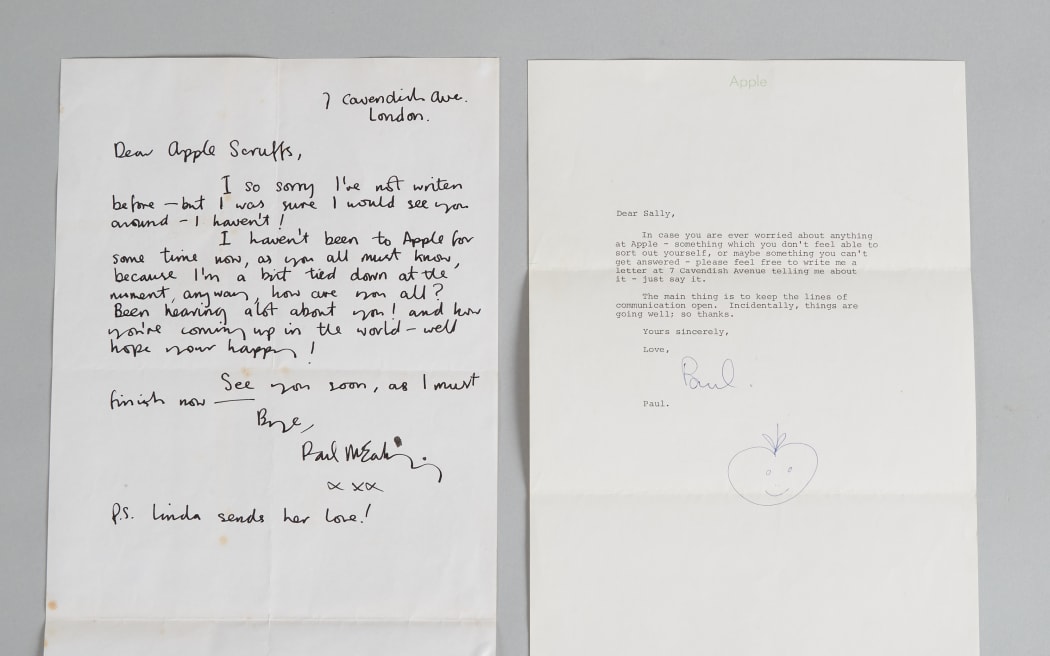 7 Cavendish Ave.
London.
Dear Apple Scruffs,
I so sorry I've not writen
before – but I was sure I would see you
around – I haven't!
I haven't been to Apple for
some time now, as you all must know,
because I'm a bit tied down at the
moment, anyway, how are you all?
Been hearing alot about you! and how
you're coming up in the world – well
hope your happy!
See you soon, as I must
finish now
Bye,
Paul
xxx
P.S. Linda sends her love!
Apple
Dear Sally,
In case you are ever worried about anything
at Apple - something which you don't feel able to
sort out yourself, or maybe something you can't
get answered - please feel free to write me a
letter at 7 Cavendish Avenue telling me about
it - just say it.
The main thing is to keep the lines of
communication open. Incidentally, things are
going well; so thanks.
Yours sincerely,
Love,
Paul.
Paul.